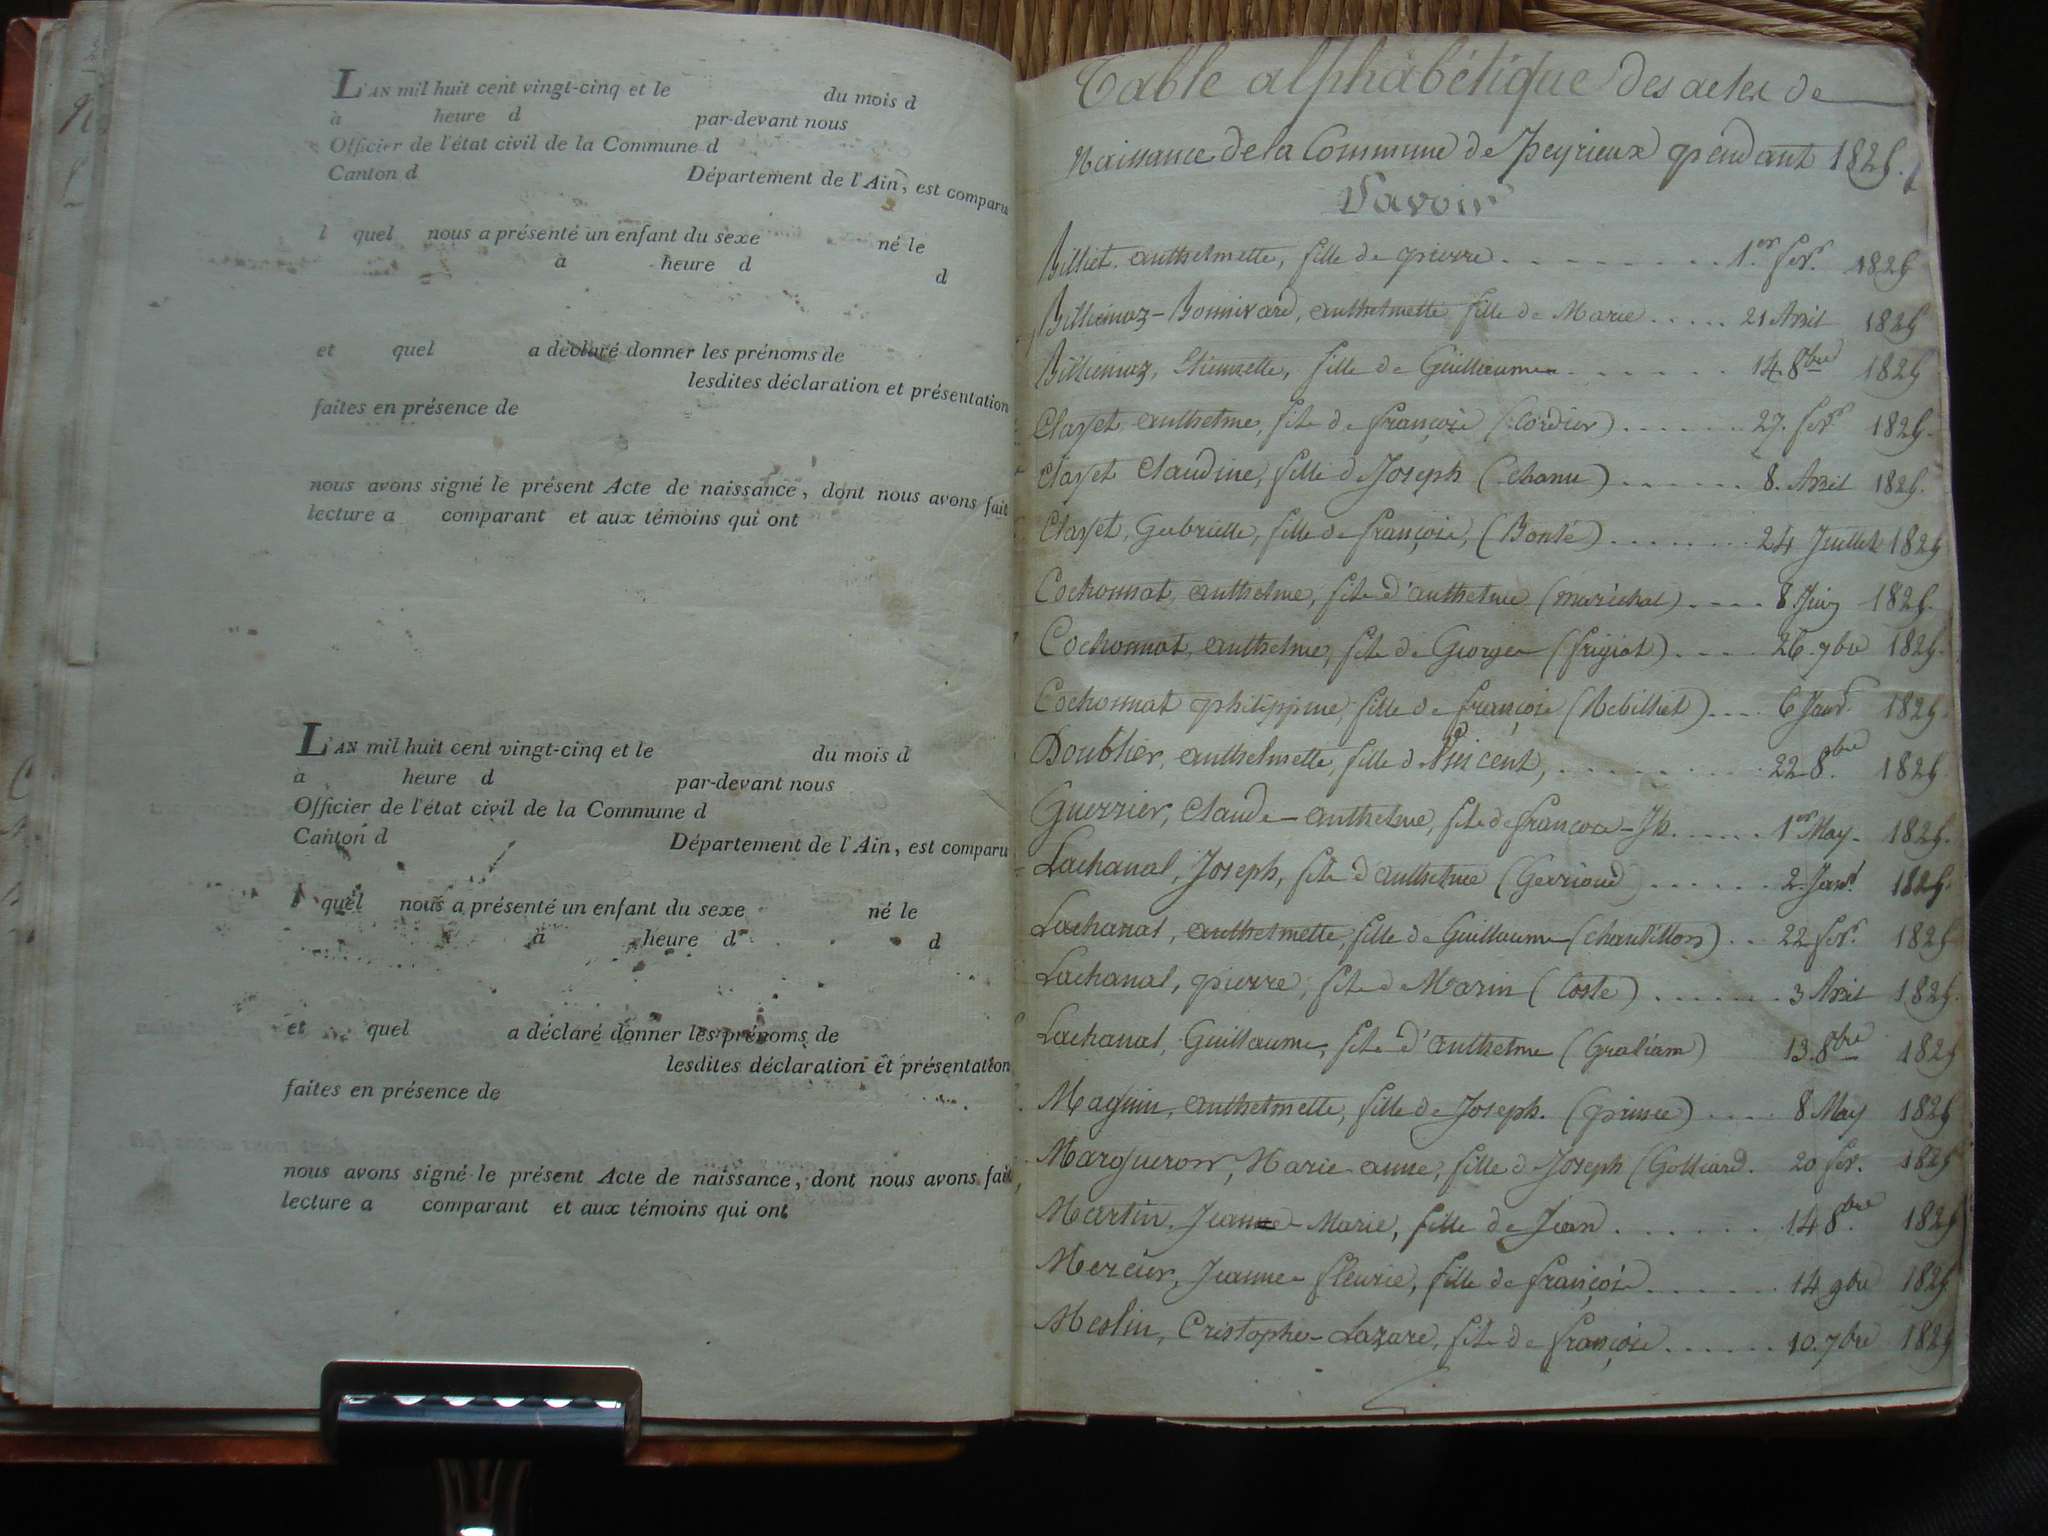 L'AN mil huit cent vingt-cinq et le du mois d
à heure d par-devant nous
Officier de l'état civil de la Commune d
Canton d Département de l'Ain, est comparu
l quel nous a présenté un enfant du sexe né le
à heure d d
et quel a déclaré donner les prénoms de
lesdites déclaration et présentation
faites en présence de
nous avons signé le présent Acte de naissance, dont nous avons fait
lecture a comparant et aux témoins qui ont
L'AN mil huit cent vingt-cinq et le du mois d
à heure d par-devant nous
Officier de l'état civil de la Commune d
Canton d Département de l'Ain, est comparu
l quel nous a présenté un enfant du sexe né le
à heure d d
et quel a déclaré donner les prénoms de
lesdites déclaration et présentation
faites en présence de
nous avons signé le présent Acte de naissance, dont nous avons fait
lecture a comparant et aux témoins qui ont
Table alphabétique des actes de
Naissance de la Commune de Peyrieux pendant 1825.
Savoir
Billiet, anthelmette, fille de pierre 1.er fév.r 1825
Billiemaz-Bonnivard, anthelmette fille de Marie 21 Avril 1825
Billiemaz, Etiennette, fille de Guillaume 14 8bre 1825
Clayet, anthelme, fils de françois (Cordier) 27. fév.r 1825.
Clayet Claudine, fille de Joseph (Chanu) 8. Avril 1825.
Clayet, Gabrielle, fille de françois, (Bonté) 24 Juillet 1825
Cochonnat, anthelme, fils d'anthelme (maréchal) 8 Juin 1825.
Cochonnat, anthelme, fils de George (frigiat) 26. 7bre 1825.
Cochonnat philippine, fille de françois (Rebilliet) 6 Janv.r 1825.
Doublier, anthelmette, fille de Vincent, 22 8.bre 1825.
Guerrier, Claude-anthelme, fils de françois-Jh. 1er May 1825.
Lachanal, Joseph, fils d'anthelme (Gerrioud) 2. Janv.r 1825.
Lachanal, anthelmette, fille de Guillaume (Chantillon) 22 fév.r 1825
Lachanal, pierre, fils de Marin (Coste) 3 Avril 1825.
Lachanal, Guillaume, fils d'anthelme (Graliam) 13. 8bre 1825
Maguin, anthelmette, fille de Joseph. (prince) 8 May 1825
Margueron, Marie-anne, fille de Joseph (Golliard. 20 fév.r 1825
Martin, Jeanne-Marie, fille de Jean 14 8.bre 1825
Mercier, Jeanne fleurie, fille de françois 14 9bre 1825
Meslin, Cristophe-Lazare, fils de françois 10. 7bre 1825